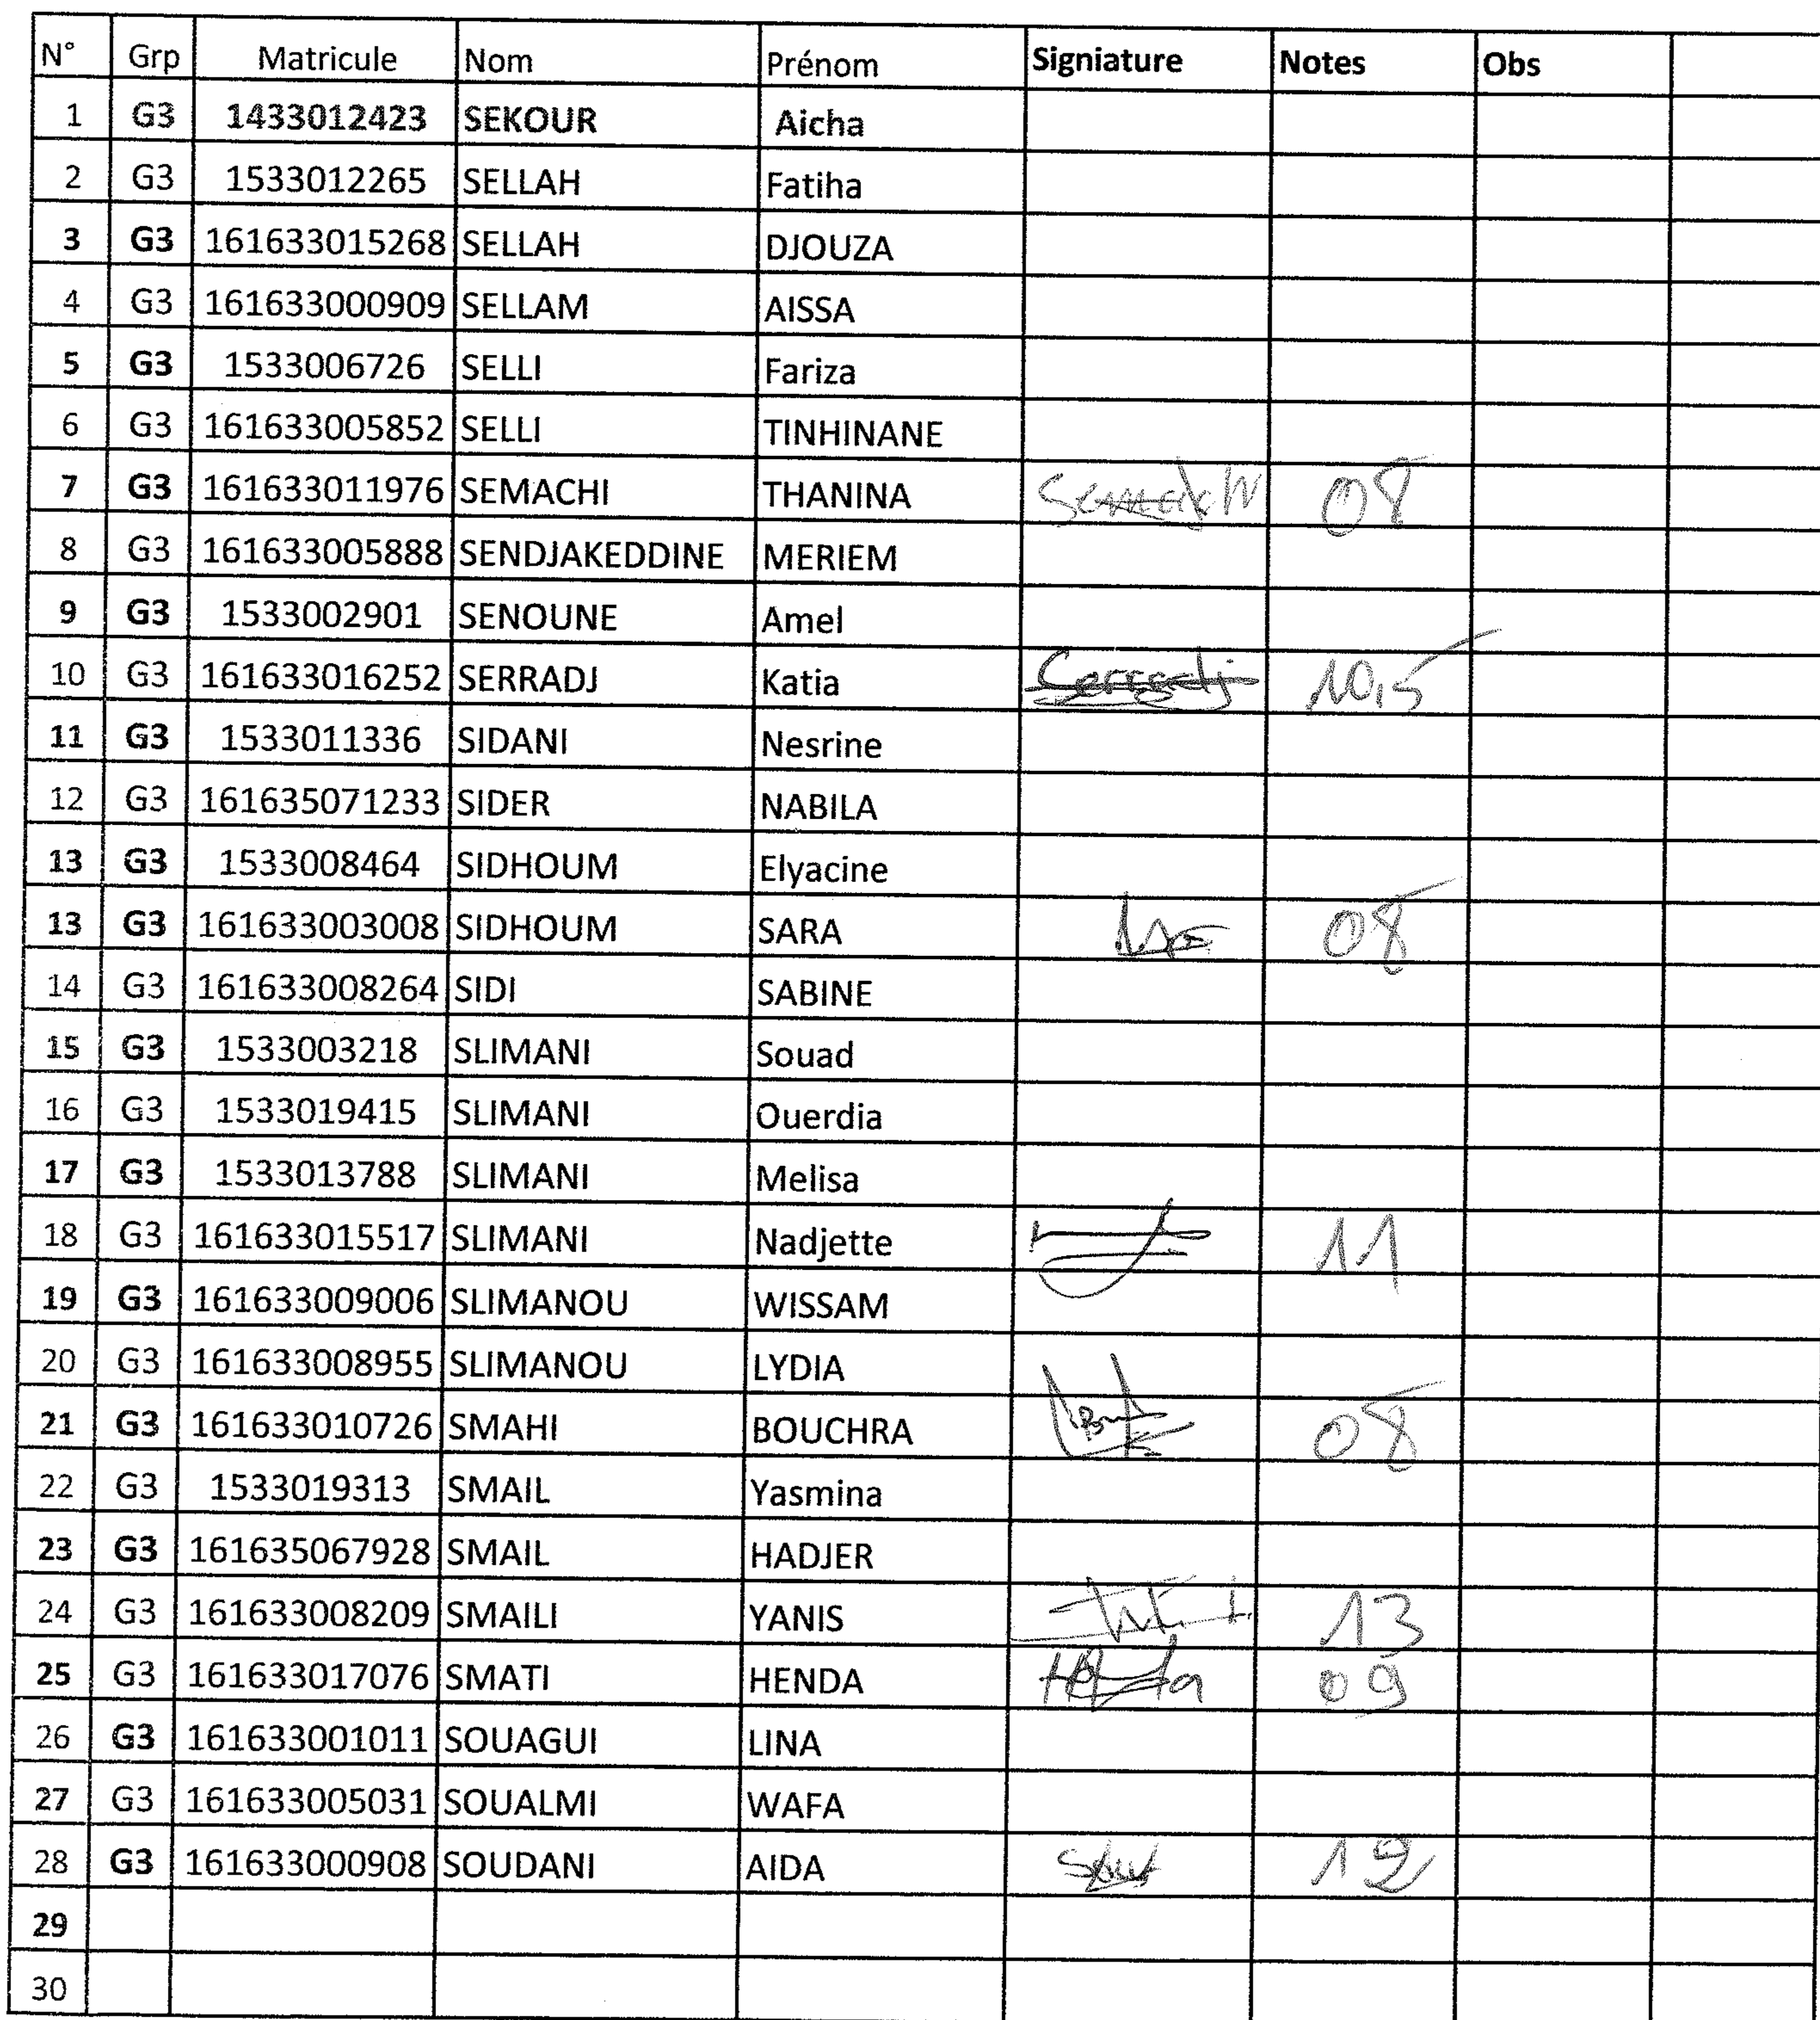 N° Grp Matricule Nom Prénom Signiature Notes Obs
1 G3 1433012423 SEKOUR Aicha
2 G3 1533012265 SELLAH Fatiha
3 G3 161633015268 SELLAH DJOUZA
4 G3 161633000909 SELLAM AISSA
5 G3 1533006726 SELLI Fariza
6 G3 161633005852 SELLI TINHINANE
7 G3 161633011976 SEMACHI THANINA 08
8 G3 161633005888 SENDJAKEDDINE MERIEM
9 G3 1533002901 SENOUNE Amel
10 G3 161633016252 SERRADJ Katia 10,5
11 G3 1533011336 SIDANI Nesrine
12 G3 161635071233 SIDER NABILA
13 G3 1533008464 SIDHOUM Elyacine
13 G3 161633003008 SIDHOUM SARA 08
14 G3 161633008264 SIDI SABINE
15 G3 1533003218 SLIMANI Souad
16 G3 1533019415 SLIMANI Ouerdia
17 G3 1533013788 SLIMANI Melisa
18 G3 161633015517 SLIMANI Nadjette 11
19 G3 161633009006 SLIMANOU WISSAM
20 G3 161633008955 SLIMANOU LYDIA
21 G3 161633010726 SMAHI BOUCHRA 08
22 G3 1533019313 SMAIL Yasmina
23 G3 161635067928 SMAIL HADJER
24 G3 161633008209 SMAILI YANIS 13
25 G3 161633017076 SMATI HENDA 09
26 G3 161633001011 SOUAGUI LINA
27 G3 161633005031 SOUALMI WAFA
28 G3 161633000908 SOUDANI AIDA 12
29
30